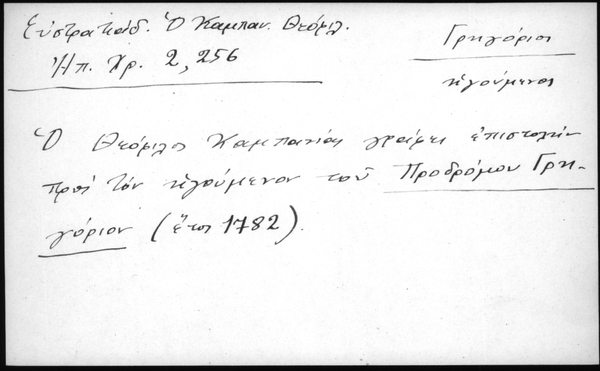 Εὐστρατιάδ. Ὁ Καμπαν. Θεόφιλ.
Ἠπ. Χρ. 2, 256
Γρηγόριος
ἡγούμενος
Ὁ Θεόφιλος Καμπανίας γράφει ἐπιστολήν
πρός τόν ἡγούμενον τοῦ Προδρόμου Γρη-
γόριον (ἔτος 1782).